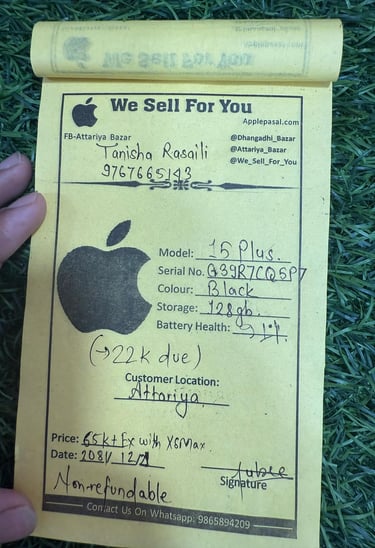 We Sell For You
Applepasal.com
FB-Attariya Bazar
@Dhangadhi_Bazar
Tanisha Rasaili
@Attariya_Bazar
9767665143
@We_Sell_For_You
Model: 15 Plus.
Serial No. G39R7CQ5P7
Colour: Black
Storage: 128gb.
Battery Health:
(→22k due)
Customer Location:
Attariya
Price: 65k+Ex with XSMax.
Date: 2081/12/
Signature
Non-refundable
Contact Us On Whatsapp: 9865894209